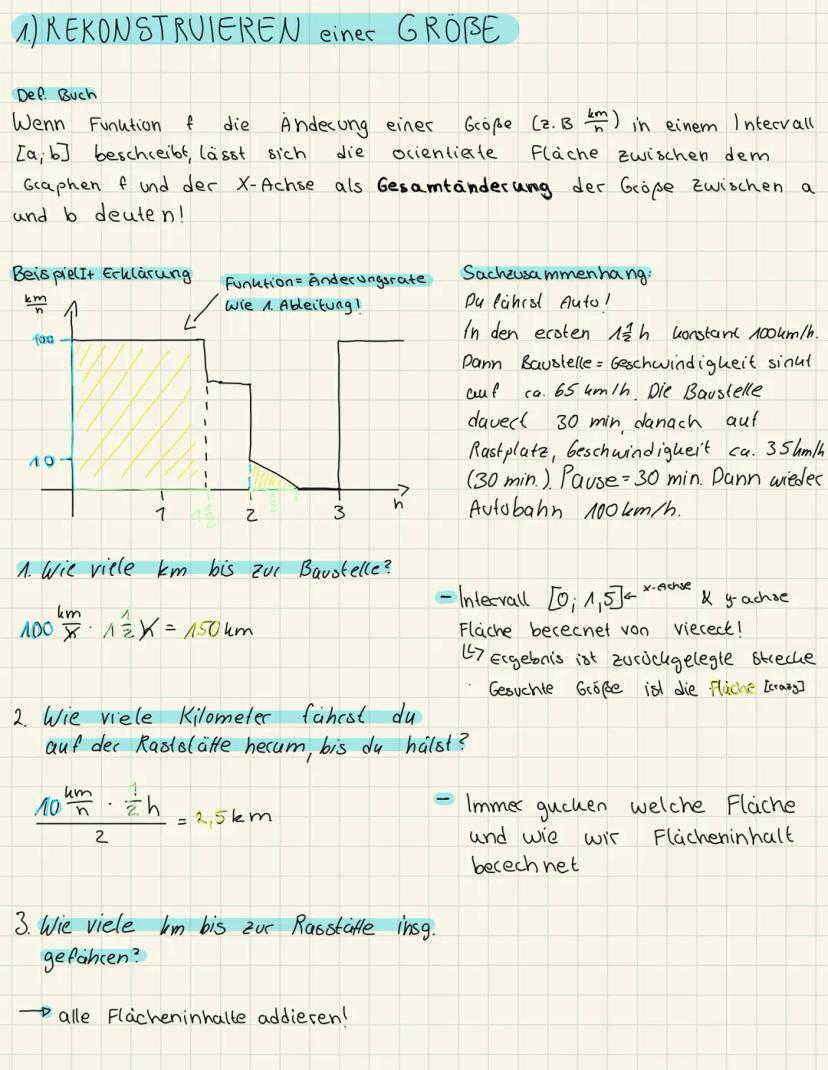 1.) REKONSTRUIEREN einer GRÖßE
Def. Buch
Wenn Funktion f die Änderung einer Größe (z.B km/h) in einem Intervall
[a;b] beschreibt, lässt sich die orientierte Fläche zwischen dem
Graphen f und der X-Achse als Gesamtänderung der Größe zwischen a
und b deuten!
Beispiel + Erklärung
Funktion = Änderungsrate
wie 1. Ableitung!
km/h
100
10
1
1 1/2
2
1/2
3
h
Sachzusammenhang:
Du fährst Auto!
In den ersten 1 1/2 h konstant 100km/h.
Dann Baustelle = Geschwindigkeit sinkt
auf ca. 65 km/h. Die Baustelle
dauert 30 min, danach auf
Rastplatz, Geschwindigkeit ca. 35km/h
(30 min.). Pause = 30 min. Dann wieder
Autobahn 100km/h.
1. Wie viele km bis zur Baustelle?
100 km/h · 1 1/2 h = 150 km
- Intervall [0; 1,5] ← x-Achse & y-achse
Fläche berechnet von viereck!
↳ Ergebnis ist zurückgelegte strecke
· Gesuchte Größe ist die Fläche [crazy]
2. Wie viele Kilometer fährst du
auf der Raststätte herum, bis du hälst?
10 km/h · 1/2 h / 2 = 2,5 km
- Immer gucken welche Fläche
und wie wir Flächeninhalt
berechnet
3. Wie viele km bis zur Rasstätte insg.
gefahren?
→ alle Flächeninhalte addieren!